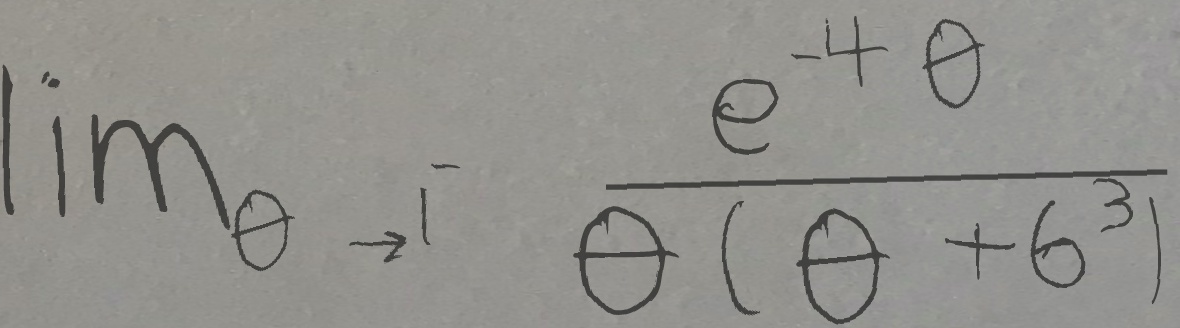 \lim_{\theta \to 1^-} \frac{e^{-4\theta}}{\theta(\theta + 6^3)}